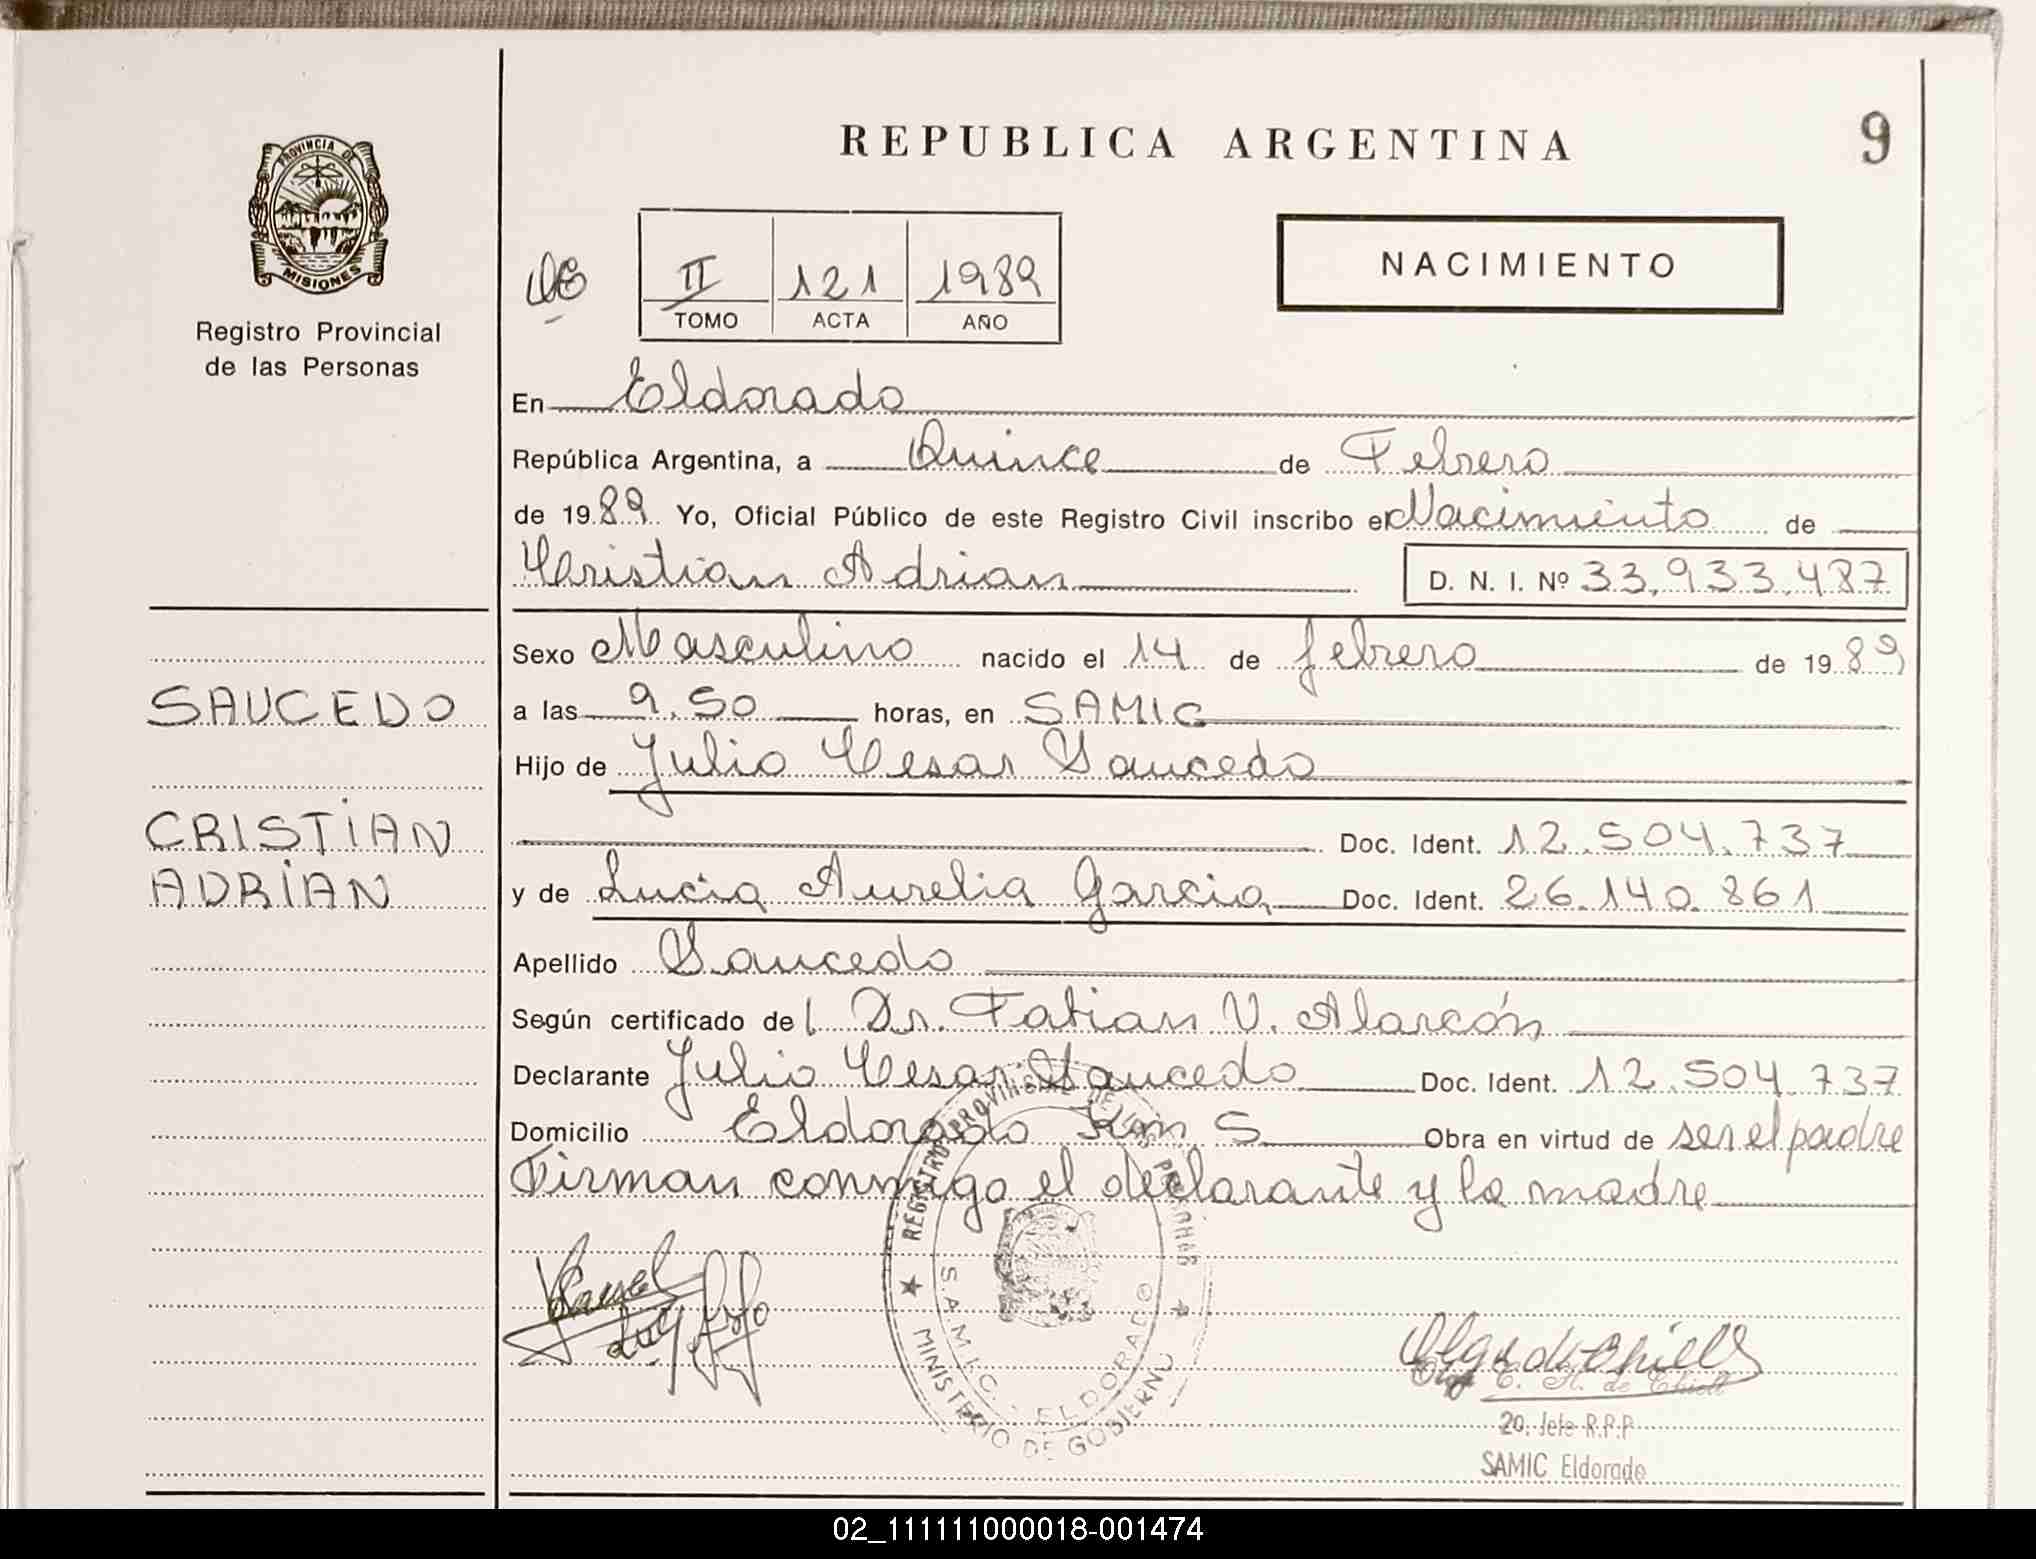 REPUBLICA ARGENTINA
9
PROVINCIA DE
MISIONES
Registro Provincial
de las Personas
II 121 1989
TOMO ACTA AÑO
NACIMIENTO
En Eldorado
República Argentina, a Quince de Febrero
de 1989 Yo, Oficial Público de este Registro Civil inscribo el Nacimiento de
Cristian Adrian D. N. I. Nº 33.933.487
Sexo Masculino nacido el 14 de febrero de 1989
SAUCEDO
a las 9.50 horas, en SAMIC
Hijo de Julio Cesar Saucedo
CRISTIAN
ADRIAN
Doc. Ident. 12.504.737
y de Lucia Aurelia Garcia Doc. Ident. 26.140.861
Apellido Saucedo
Según certificado del Dr. Fabian V. Alarcón
Declarante Julio Cesar Saucedo Doc. Ident. 12.504.737
Domicilio Eldorado Km 5 Obra en virtud de ser el padre
Firman conmigo el declarante y la madre
REGISTRO PROVINCIAL DE LAS PERSONAS
S.A.M.I.C. - ELDORADO
MINISTERIO DE GOBIERNO
Olga de Chiell
de
20. Jefe R.P.P
SAMIC Eldorado
02_111111000018-001474